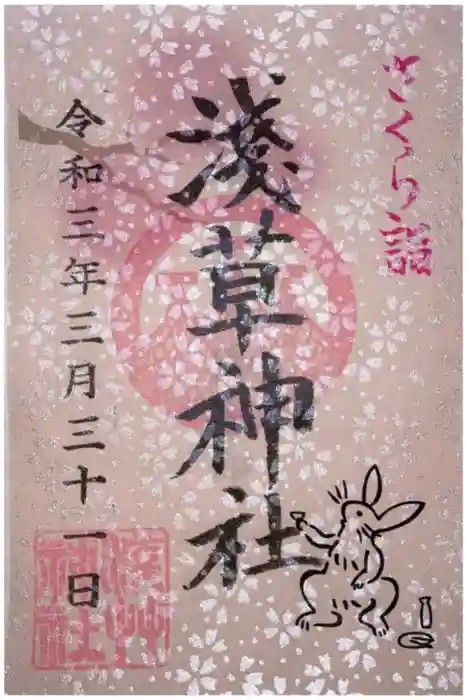 さくら詣
淺草神社
令和三年三月三十一日
淺艸神社